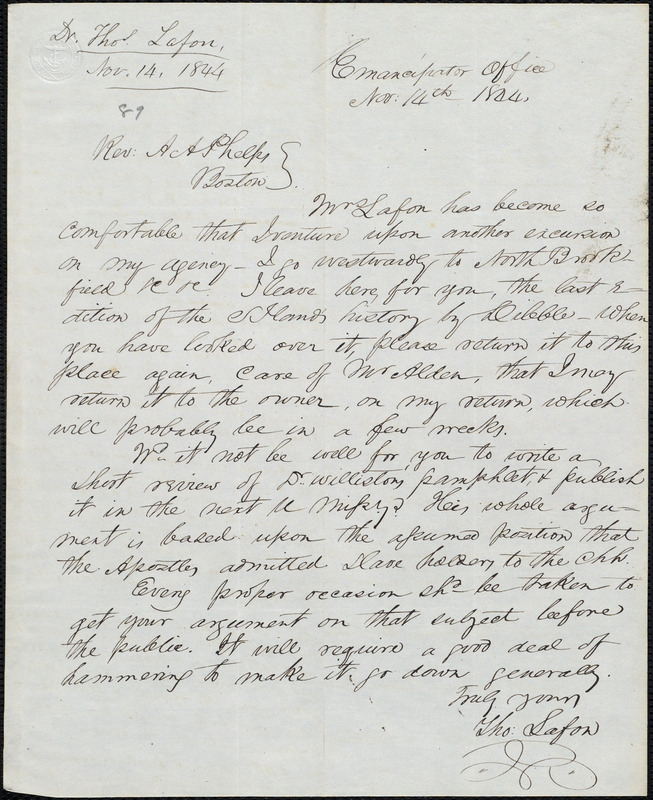 Dr. Thos Lafon,
Nov. 14, 1844
89
Emancipator Office
Nov: 14th 1844.
Rev: A A Phelps }
Boston
Mrs Lafon has become so
comfortable that I venture upon another excursion
on my agency – I go westwardly to North Brook-
field &c &c I leave here, for you, the last e-
dition of the Islands history by Dibble – When
you have looked over it, please return it to this
place again, care of Mr Alden, that I may
return it to the owner, on my return, which
will probably be in a few weeks.
Wd it not be well for you to write a
short review of Dr Williston's pamphlet, & publish
it in the next U Missry? His whole argu-
ment is based upon the assumed position that
the Apostles admitted slave holders to the chh.
Every proper occasion shd be taken to
get your argument on that subject before
the public. It will require a good deal of
hammering to make it go down generally.
Truly yours
Tho: Lafon